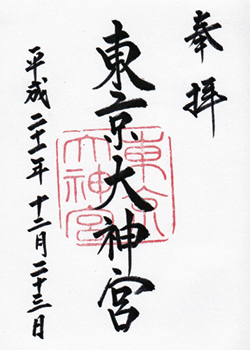 奉拝
東京大神宮
平成二十一年十二月二十三日
東京
大神宮